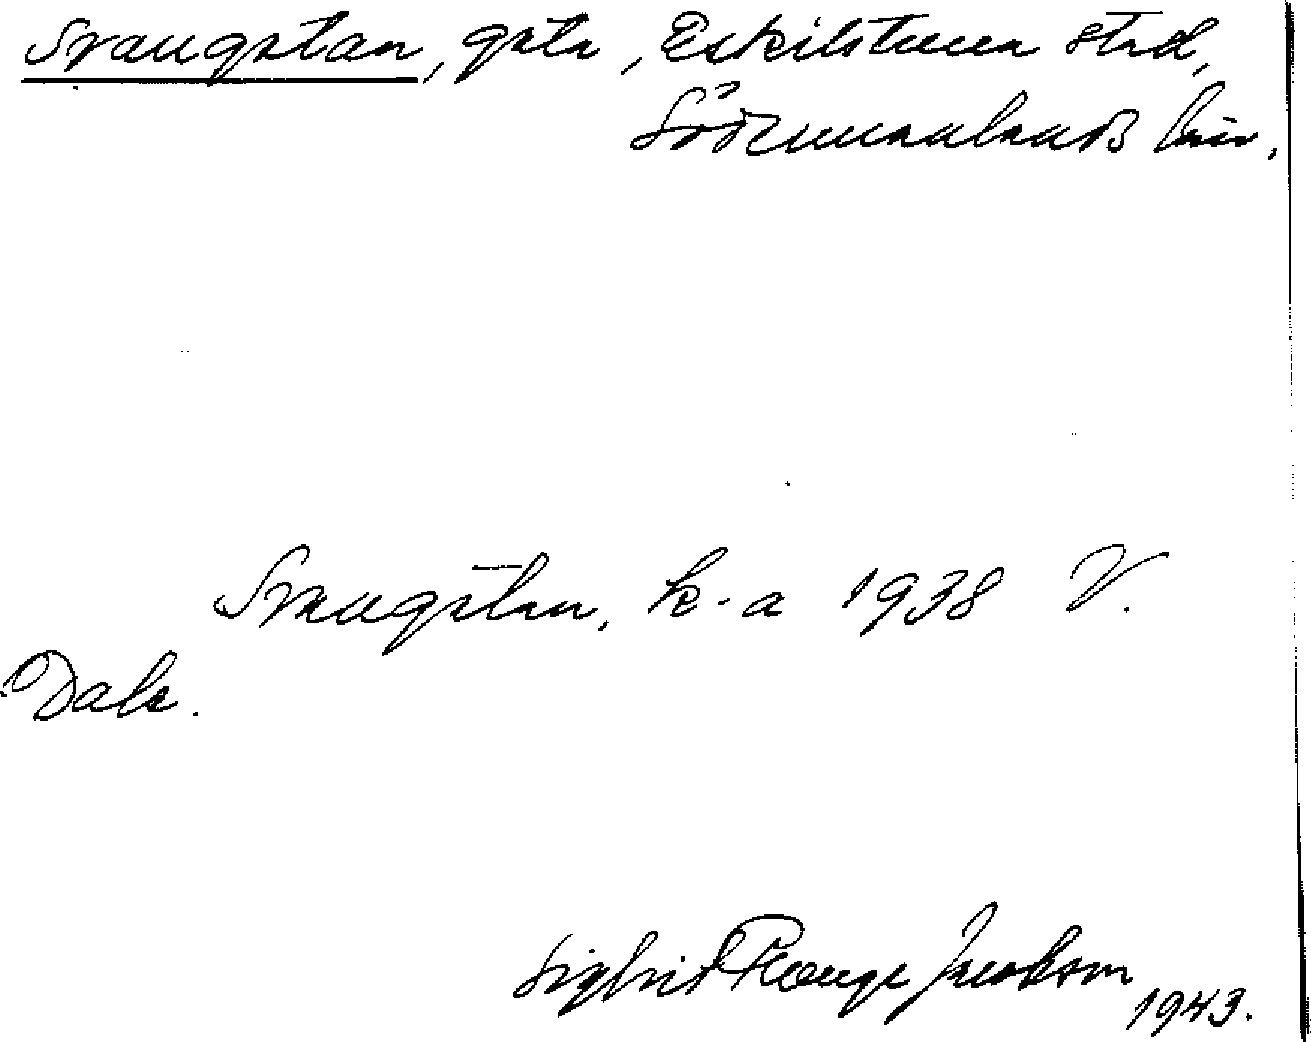 Svangatan, gata, Eskilstuna stad,
Södermanlands län.
Svangatan, k-a 1938 V.
Dala.
Sigfrid Jacobson
1943.